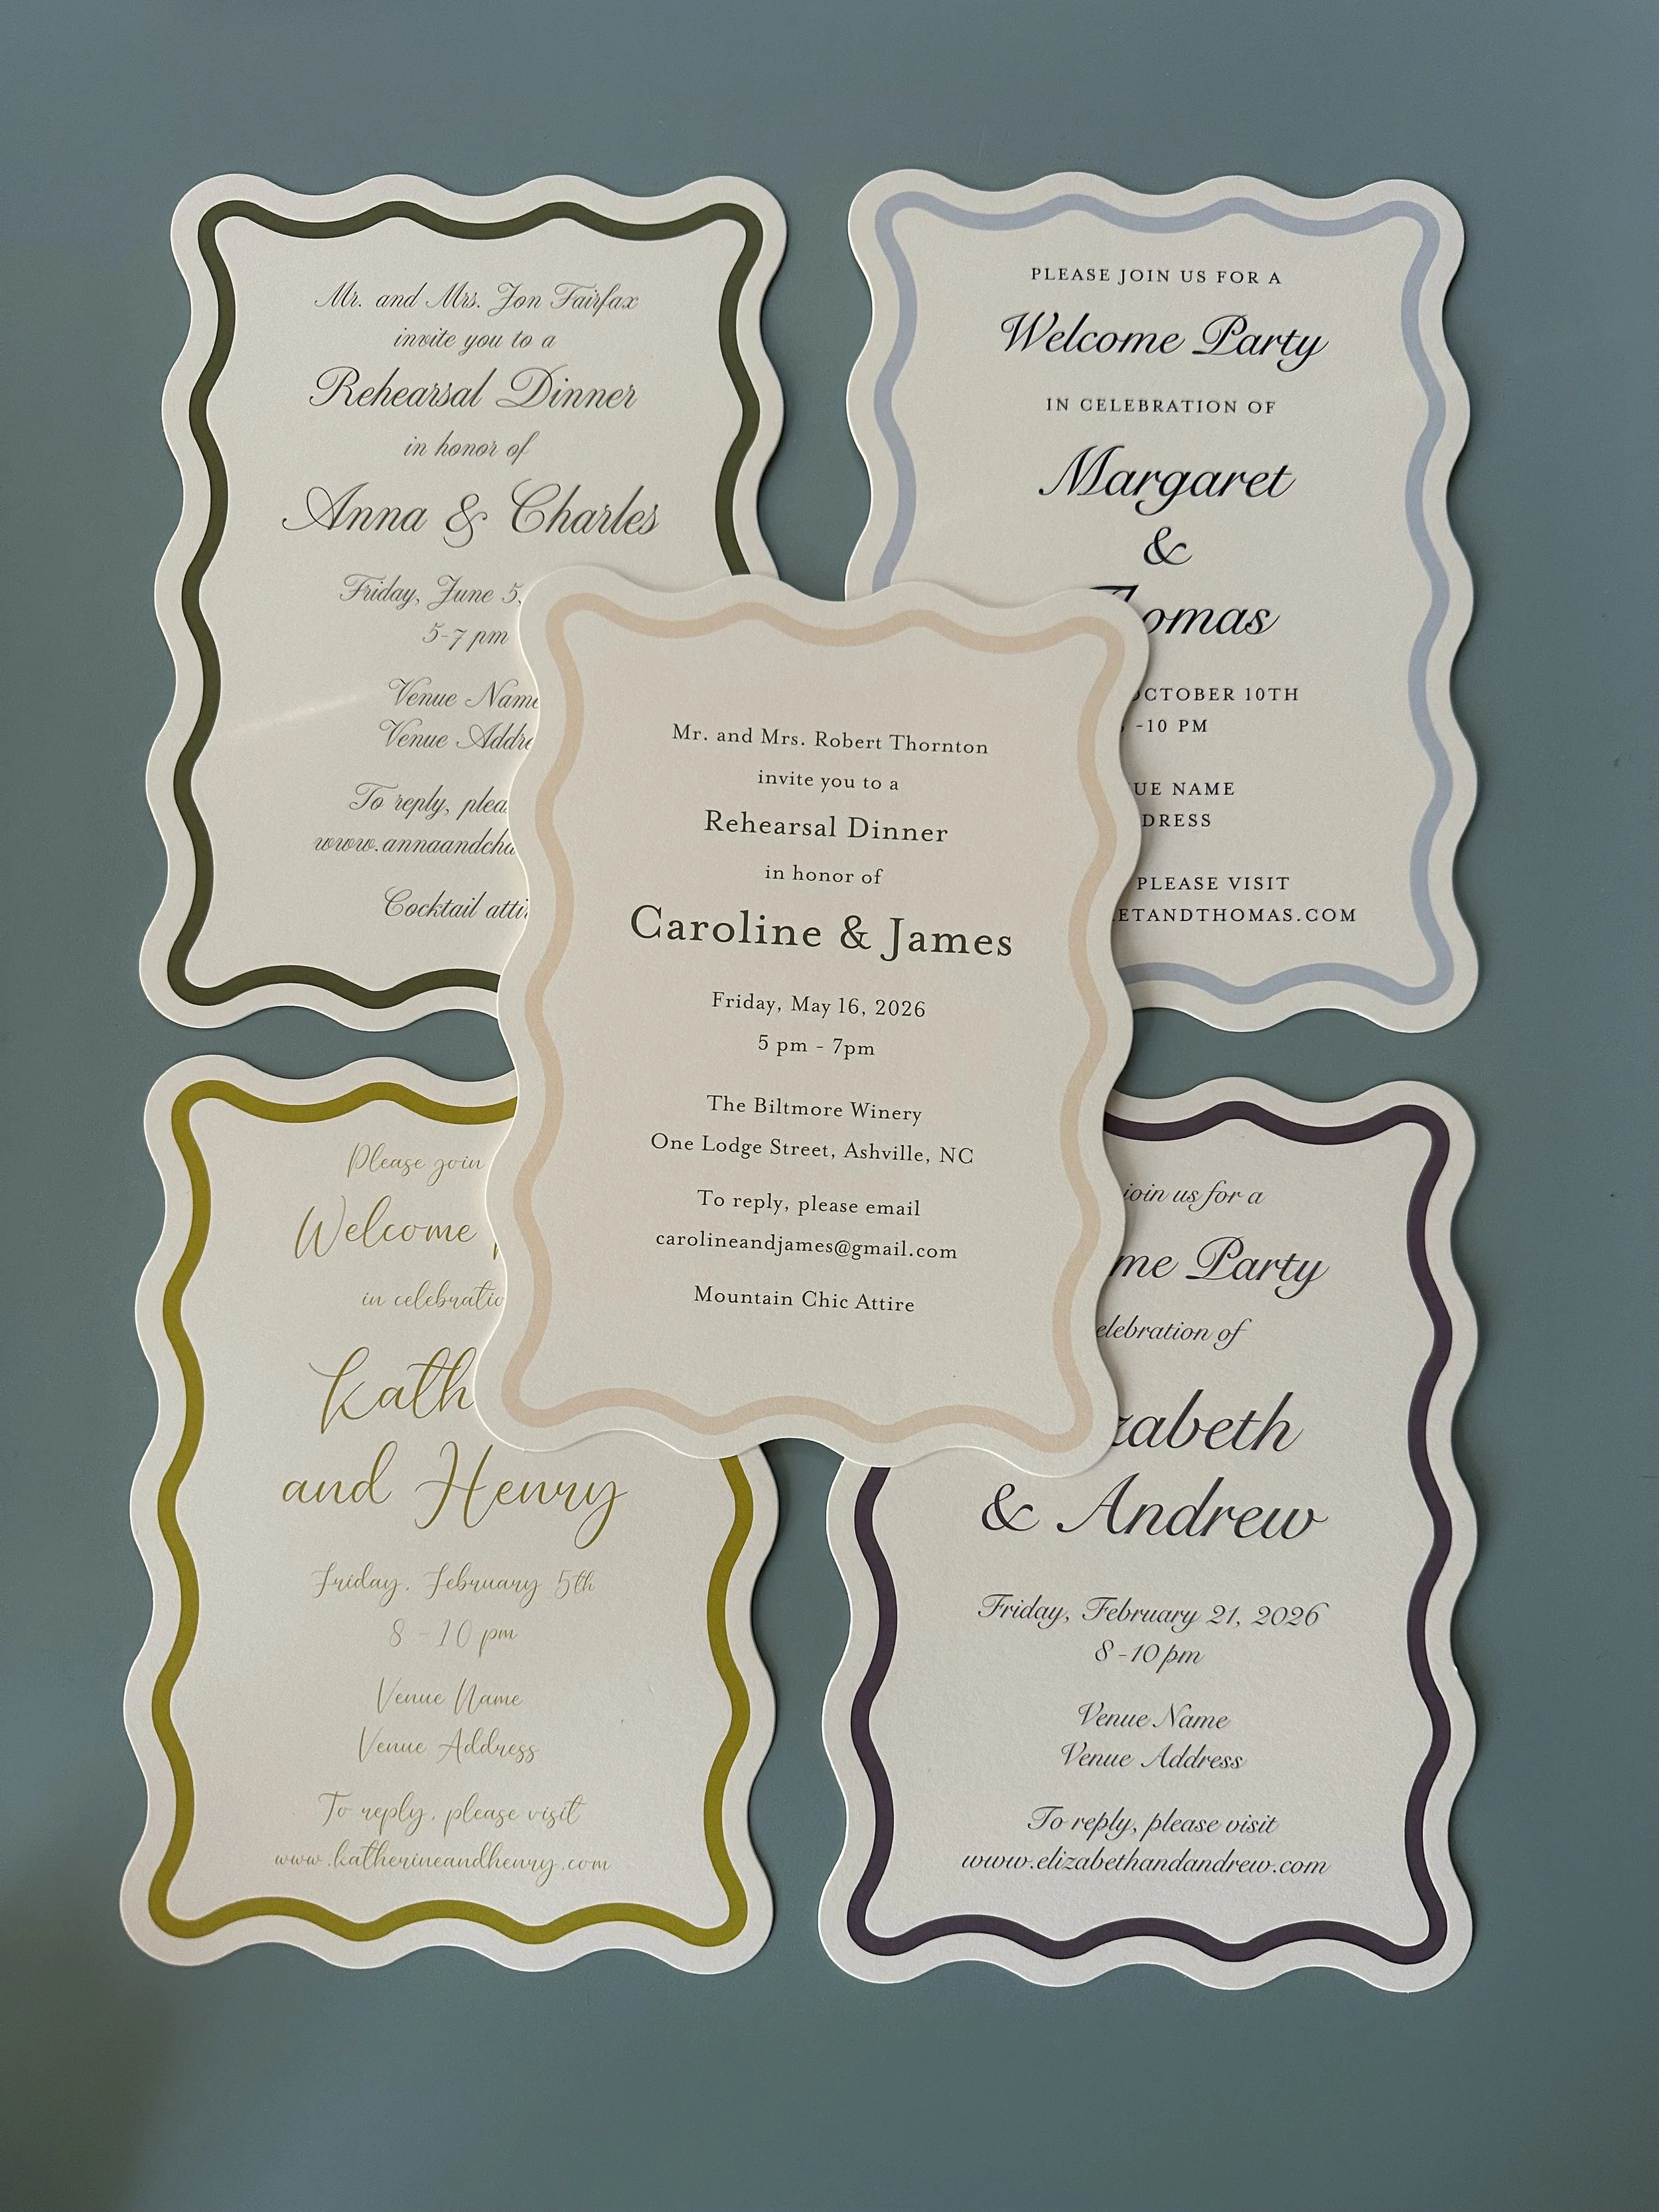 Mr. and Mrs. Jon Fairfax
invite you to a
Rehearsal Dinner
in honor of
Anna & Charles
Friday, June 5,
5-7 pm
Venue Name
Venue
To reply,
Cocktail
PLEASE JOIN US FOR A
Welcome Party
IN CELEBRATION OF
Margaret
&
OCTOBER 10TH
-10 PM
NAME
PLEASE VISIT
Mr. and Mrs. Robert Thornton
invite you to a
Rehearsal Dinner
in honor of
Caroline & James
Friday, May 16, 2026
5 pm - 7pm
The Biltmore Winery
One Lodge Street, Ashville, NC
To reply, please email
carolineandjames@gmail.com
Mountain Chic Attire
Please join
Welcome
in
and Henry
Friday, February 5th
8 - 10 pm
Venue Name
Venue Address
To reply, please visit
www.katherineandhenry.com
join us for a
Party
of
& Andrew
Friday, February 21, 2026
8 - 10 pm
Venue Name
Venue Address
To reply, please visit
www.elizabethandandrew.com